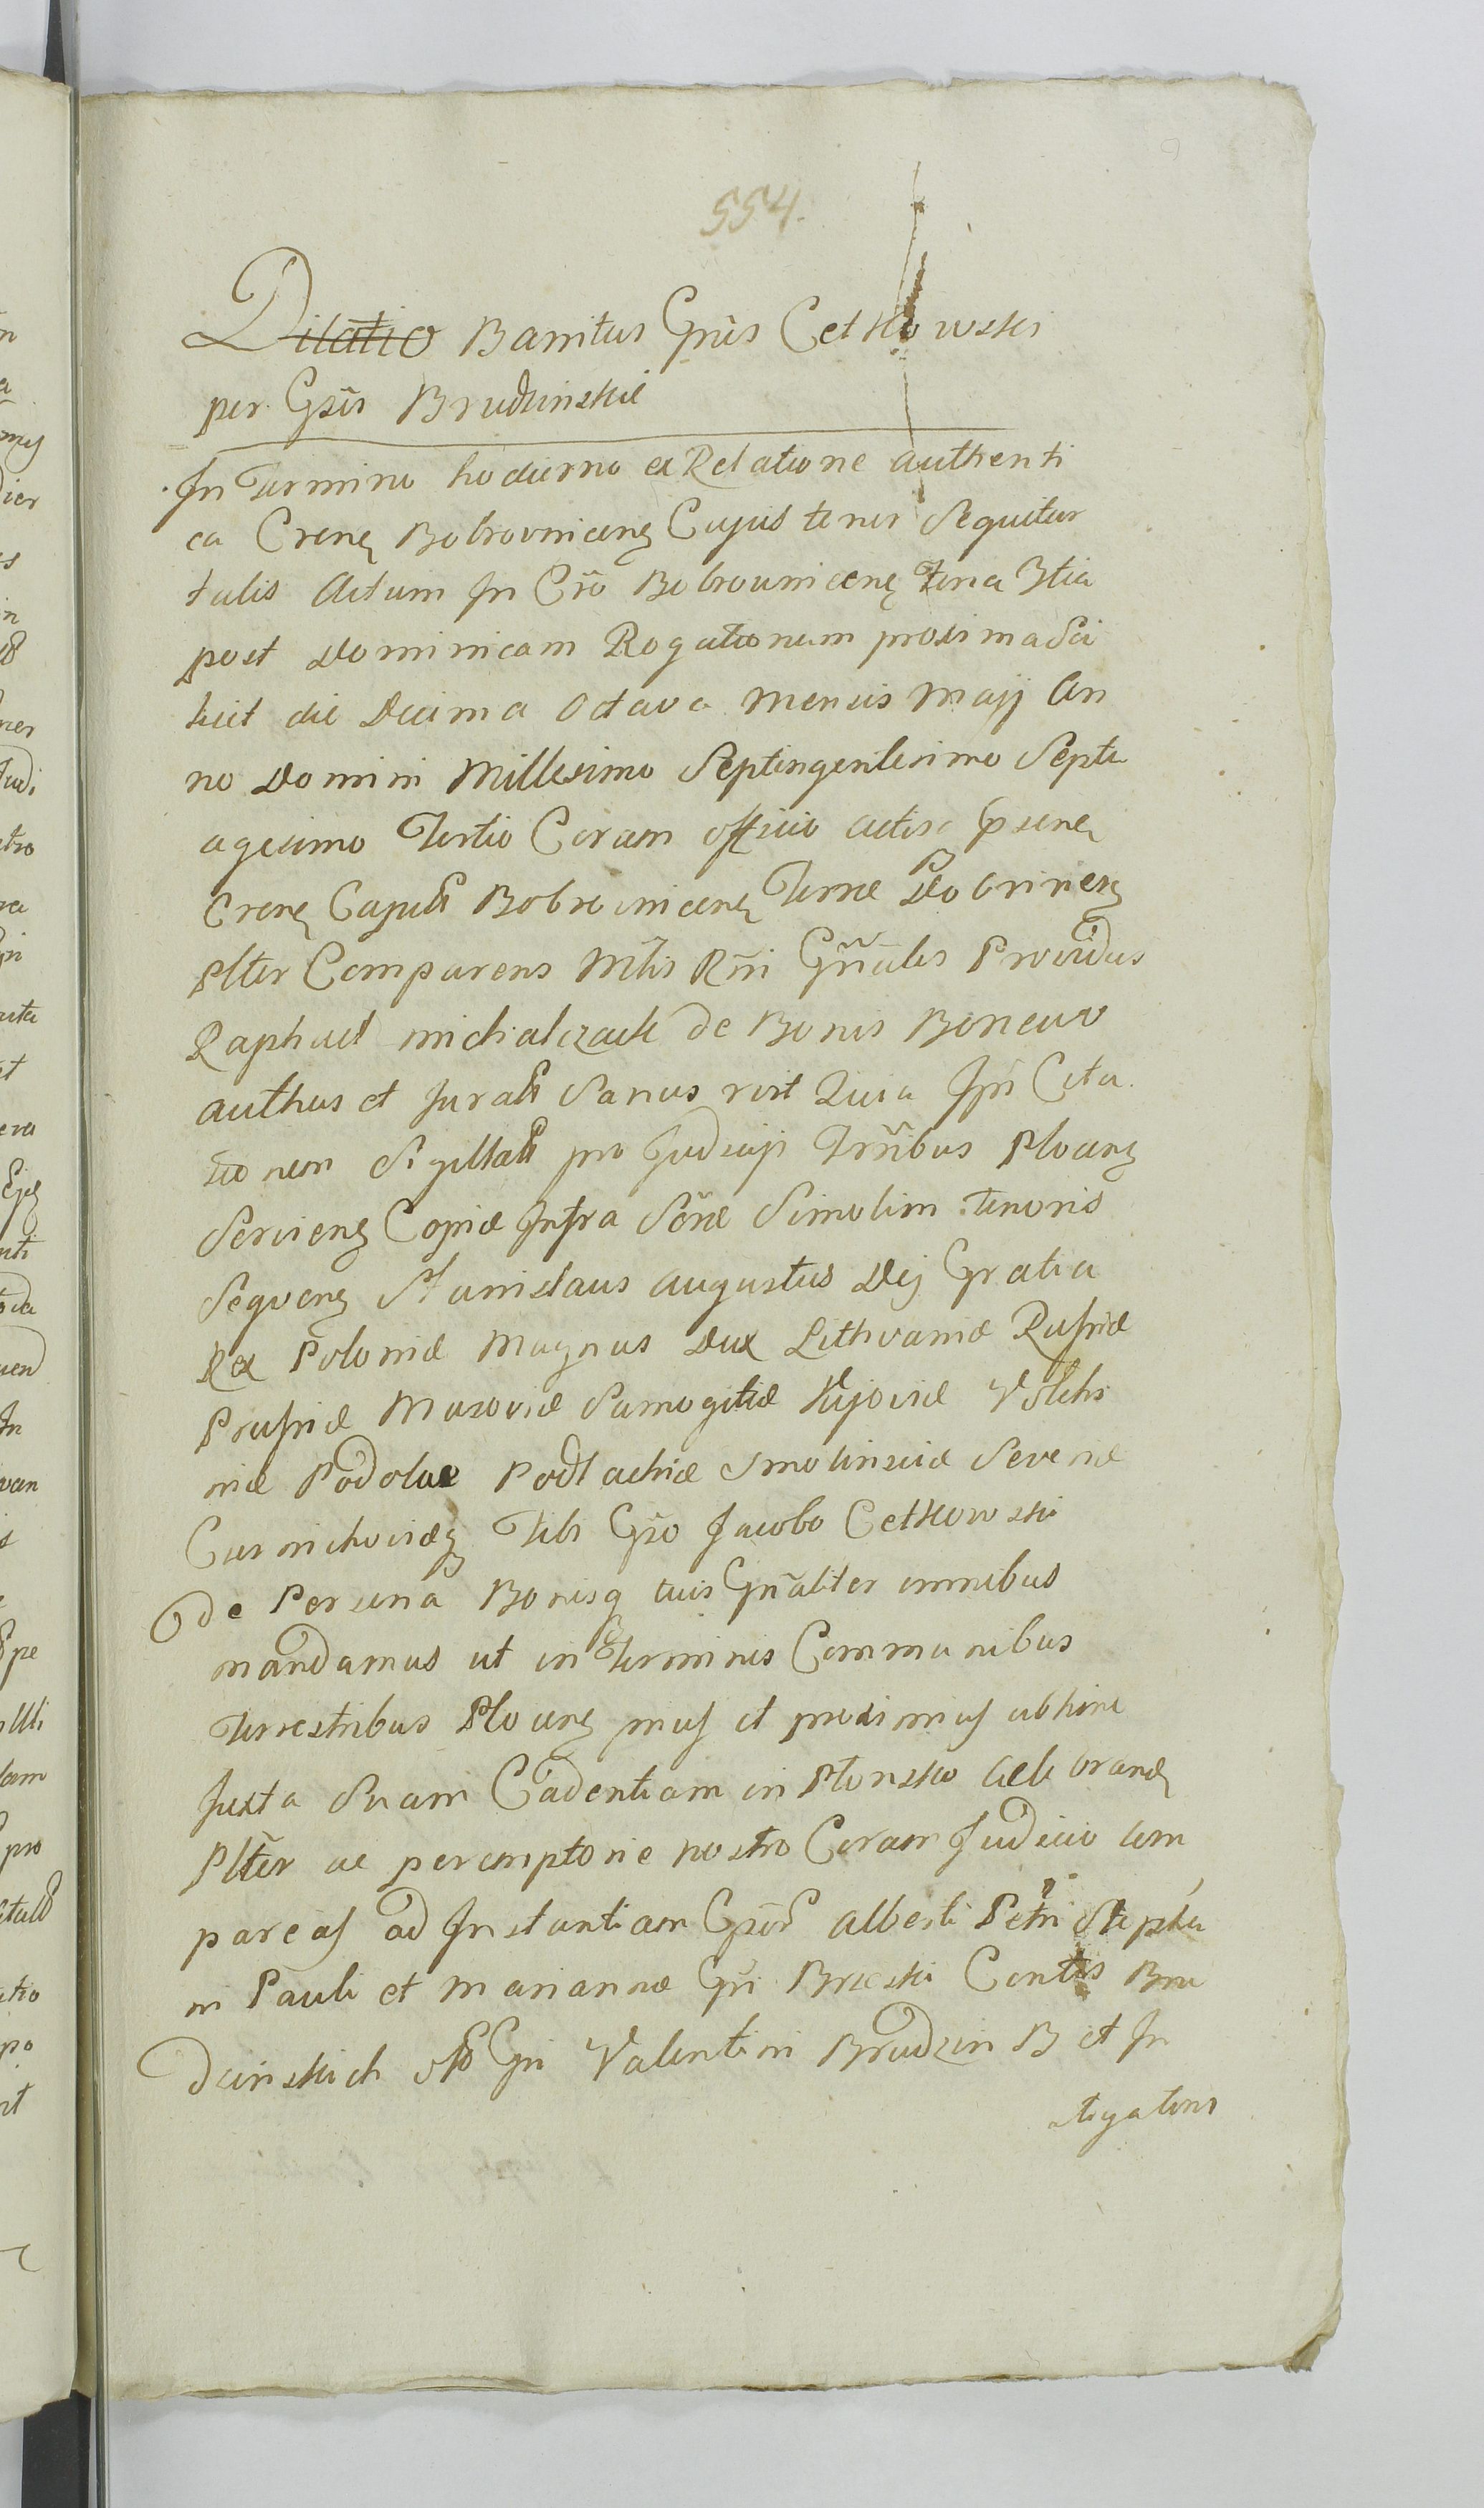 554.
Dilatio Banitus Gn̄us Cetkowski
per Gsūs Brudzinskie
In Termino hodierno ex Relatione authenti
ca Crenȝ Bobrovnicenȝ Cujus tenor Sequitur
talis Actum In Crō Bobrovnicenȝ Feria 3tia
post Dominicam Rogationum proxima Sci
licet die Decima Octava Mensis Maji An
no Domini Millesimo Septingentesimo Septu
agesimo Tertio Coram officio actisq psenȝ
Crenȝ Capitli Bobrovnicenȝ Terræ Dobrinenȝ
Plter Comparens Mtis Rñi Gñalis Providus
Raphael Michalczack de Bonis Boncuv
authus et Jurati Sanus Quia Ipse Cita
tionem Sigillati pro Judicijs Trr̄ibus Plocenȝ
Servienȝ Copiæ Infra Sc̄ræ Simolim tenoris
Seqvenȝ Stanislaus Augustus Dej Gratia
Rex Poloniæ Magnus Dux Lithvaniæ Russiæ
Prussiæ Masoviæ Samogitiæ Kijoviæ Volhi
niæ Podoliæ Podlachiæ Smolinsciæ Severiæ
Czernichoviæq Tibi Gn̄o Jacobo Cetkowski
De Persona Bonisq tuis Gñaliter omnibus
mandamus ut in Terminis Communibus
Terrestribus Plocenȝ primis et proximis abhinc
Juxta Suam Cadentiam in Plonsko Celebrandȝ
Plter ac peremptorie nostro Coram Judicio com
pareas ad Instantiam Gsōr Alberti Petri Stepha
ni Pauli et Mariannæ Gn̄i Brzeski Contis Bru
dzinskich olim Gn̄i Valentini Brudzin B et In
stigatoris